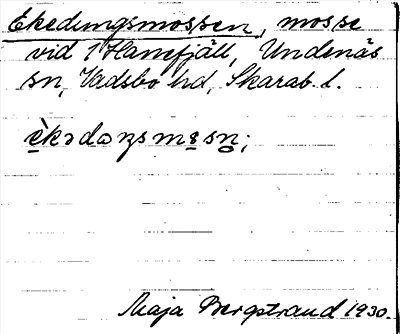 Ekedungsmossen, mosse
vid 1 Hanefjäll, Undenäs
sn, Vadsbo hd, Skarab. l.
Maja Bergstrand 1930.